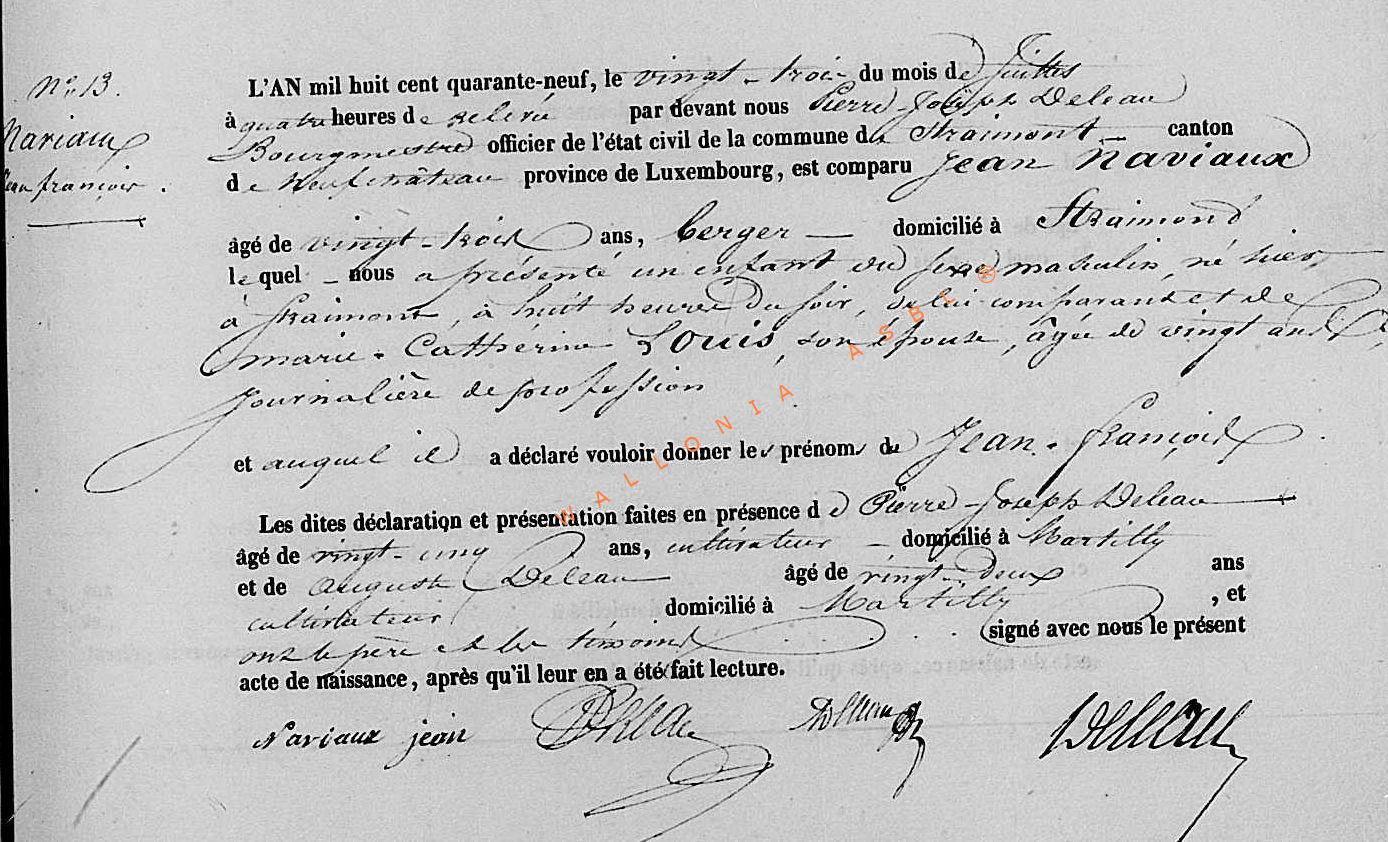 N° 13.
Naviaux
Jean françois.
L'AN mil huit cent quarante-neuf, le vingt-trois du mois de Juillet
à quatre heures de relevée par devant nous Pierre-Joseph Deleau
Bourgmestre officier de l'état civil de la commune de Straimont canton
de Neufchâteau province de Luxembourg, est comparu Jean Naviaux
âgé de vingt-trois ans, berger — domicilié à Straimond
lequel - nous a présenté un enfant du sexe masculin, né hier,
à Straimont, à huit heures du soir, de lui comparant et de
marie-Cathérine Louis, son épouse, âgée de vingt ans,
journalière de profession
et auquel il a déclaré vouloir donner les prénoms de Jean-françois.
Les dites déclaration et présentation faites en présence de Pierre-Joseph Deleau
âgé de vingt-cinq ans, cultivateur — domicilié à Martilly
et de auguste Deleau âgé de vingt-deux ans
cultivateur domicilié à Martilly, et
ont le père et les témoins signé avec nous le présent
acte de naissance, après qu'il leur en a été fait lecture.
Naviaux jean Deleau Deleau Deleau
WALLONIA ASBL ®